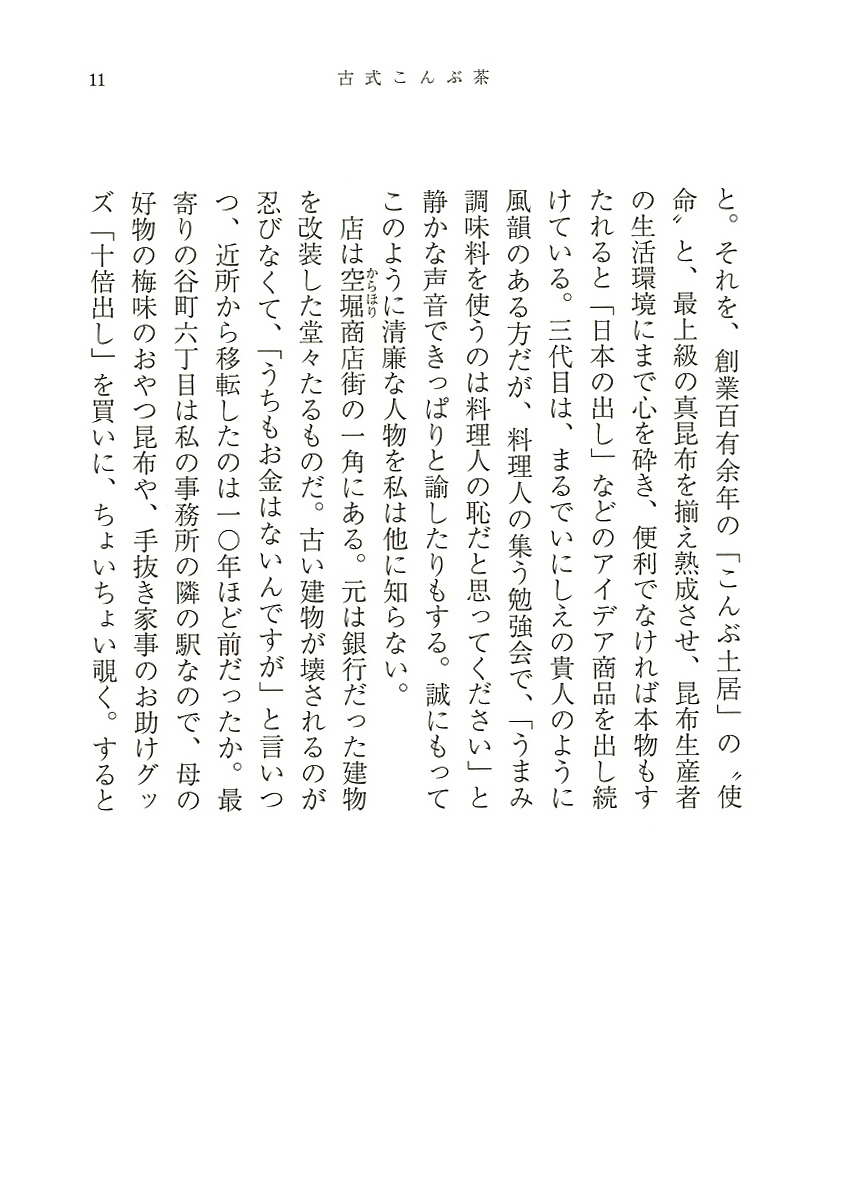 11
古式こんぶ茶
と。それを、創業百有余年の「こんぶ土居」の〝使
命〟と、最上級の真昆布を揃え熟成させ、昆布生産者
の生活環境にまで心を砕き、便利でなければ本物もす
たれると「日本の出し」などのアイデア商品を出し続
けている。三代目は、まるでいにしえの貴人のように
風韻のある方だが、料理人の集う勉強会で、「うまみ
調味料を使うのは料理人の恥だと思ってください」と
静かな声音できっぱりと諭したりもする。誠にもって
このように清廉な人物を私は他に知らない。
店は空堀商店街の一角にある。元は銀行だった建物
からほり
を改装した堂々たるものだ。古い建物が壊されるのが
忍びなくて、「うちもお金はないんですが」と言いつ
つ、近所から移転したのは一〇年ほど前だったか。最
寄りの谷町六丁目は私の事務所の隣の駅なので、母の
好物の梅味のおやつ昆布や、手抜き家事のお助けグッ
ズ「十倍出し」を買いに、ちょいちょい覗く。すると